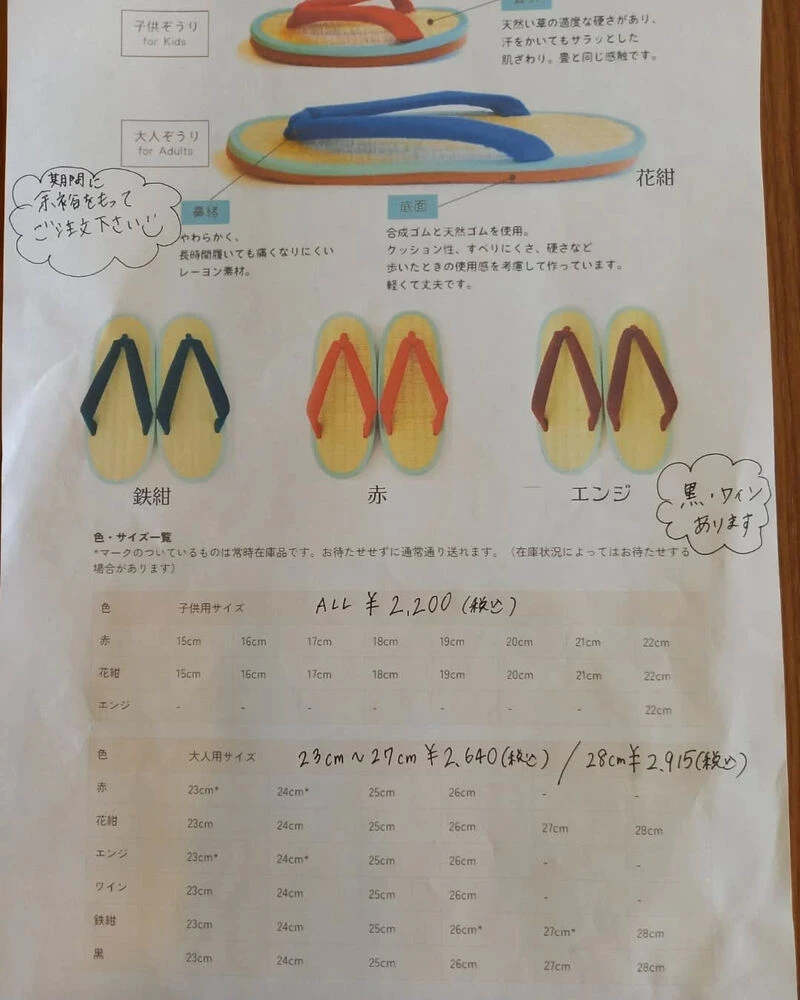 子供ぞうり
for Kids
天然い草の適度な硬さがあり、
汗をかいてもサラッとした
肌ざわり。畳と同じ感触です。
大人ぞうり
for Adults
花紺
期間に
余裕をもって
ご注文下さい
鼻緒
やわらかく、
長時間履いても痛くなりにくい
レーヨン素材。
底面
合成ゴムと天然ゴムを使用。
クッション性、すべりにくさ、硬さなど
歩いたときの使用感を考慮して作っています。
軽くて丈夫です。
鉄紺
赤
エンジ
黒・ワイン
あります
色・サイズ一覧
*マークのついているものは常時在庫品です。お待たせせずに通常通り送れます。（在庫状況によってはお待たせする
場合があります）
色 子供用サイズ ALL ¥2,200(税込)
赤 15cm 16cm 17cm 18cm 19cm 20cm 21cm 22cm
花紺 15cm 16cm 17cm 18cm 19cm 20cm 21cm 22cm
エンジ - - - - - - - 22cm
色 大人用サイズ 23cm~27cm ¥2,640(税込) / 28cm ¥2,915(税込)
赤 23cm* 24cm* 25cm 26cm - -
花紺 23cm 24cm 25cm 26cm 27cm 28cm
エンジ 23cm* 24cm* 25cm 26cm - -
ワイン 23cm 24cm 25cm 26cm - -
鉄紺 23cm 24cm 25cm 26cm* 27cm* 28cm
黒 23cm 24cm 25cm 26cm 27cm 28cm